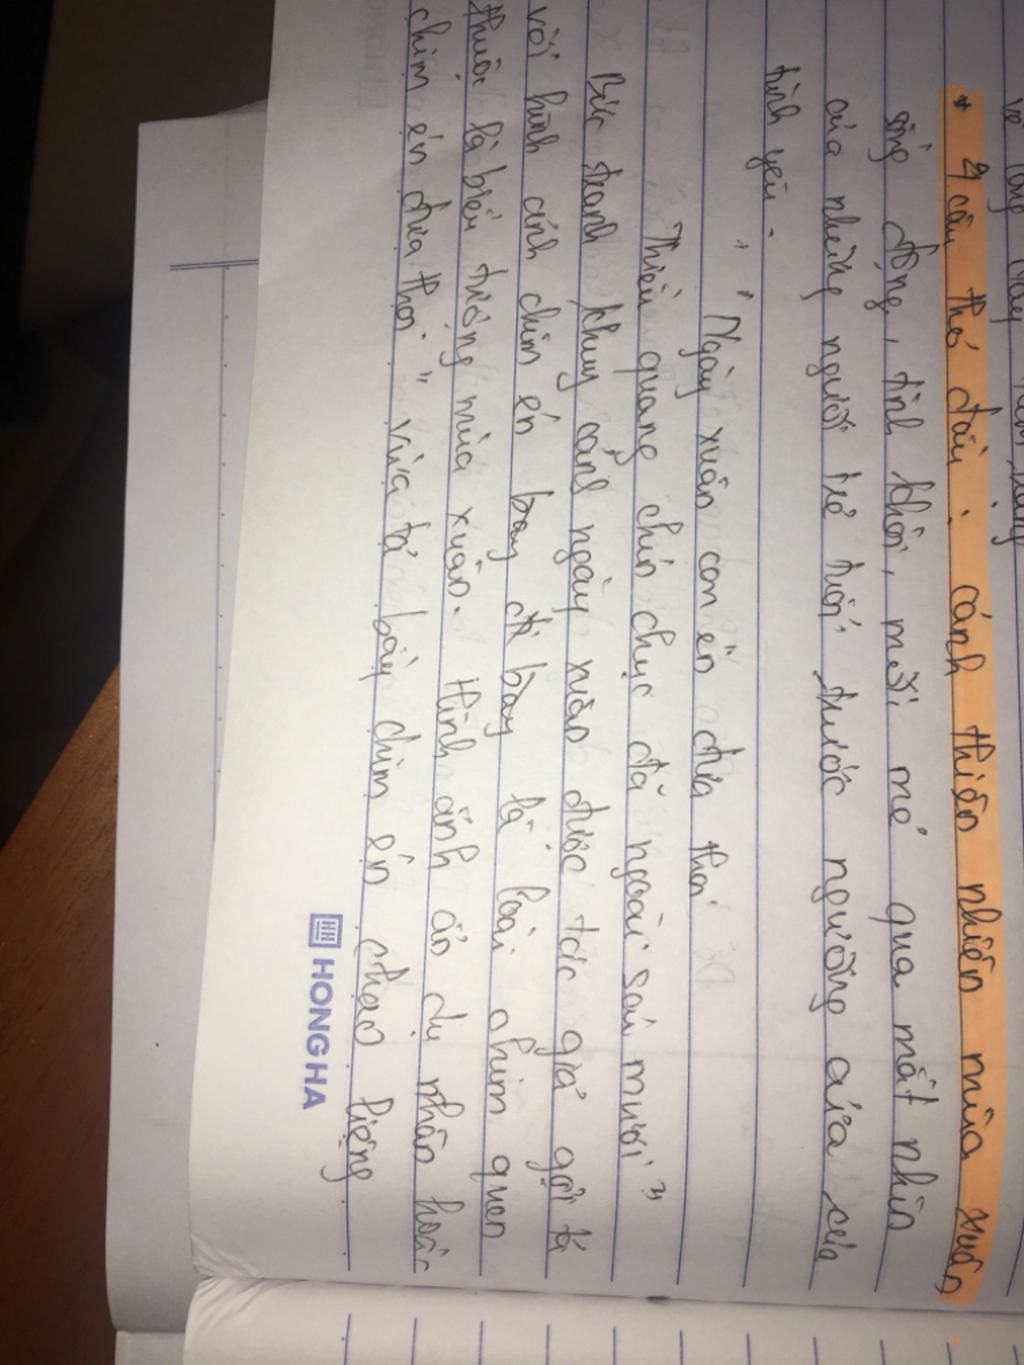 * 4 câu thơ đầu: cảnh thiên nhiên mùa xuân
động, tinh khôi, mới mẻ qua mắt nhìn
của những người trẻ tuổi trước ngưỡng cửa của
tình yêu.
" Ngày xuân con én đưa thoi
Thiều quang chín chục đã ngoài sáu mươi"
Bức tranh khung cảnh ngày xuân được tác giả gợi tả
với hình ảnh chim én bay đi bay là loài chim quen
thuộc là biểu tượng mùa xuân. Hình ảnh ẩn dụ nhân hoá
chim én đưa thoi " vừa tả bầy chim én chao liệng
HONG HA